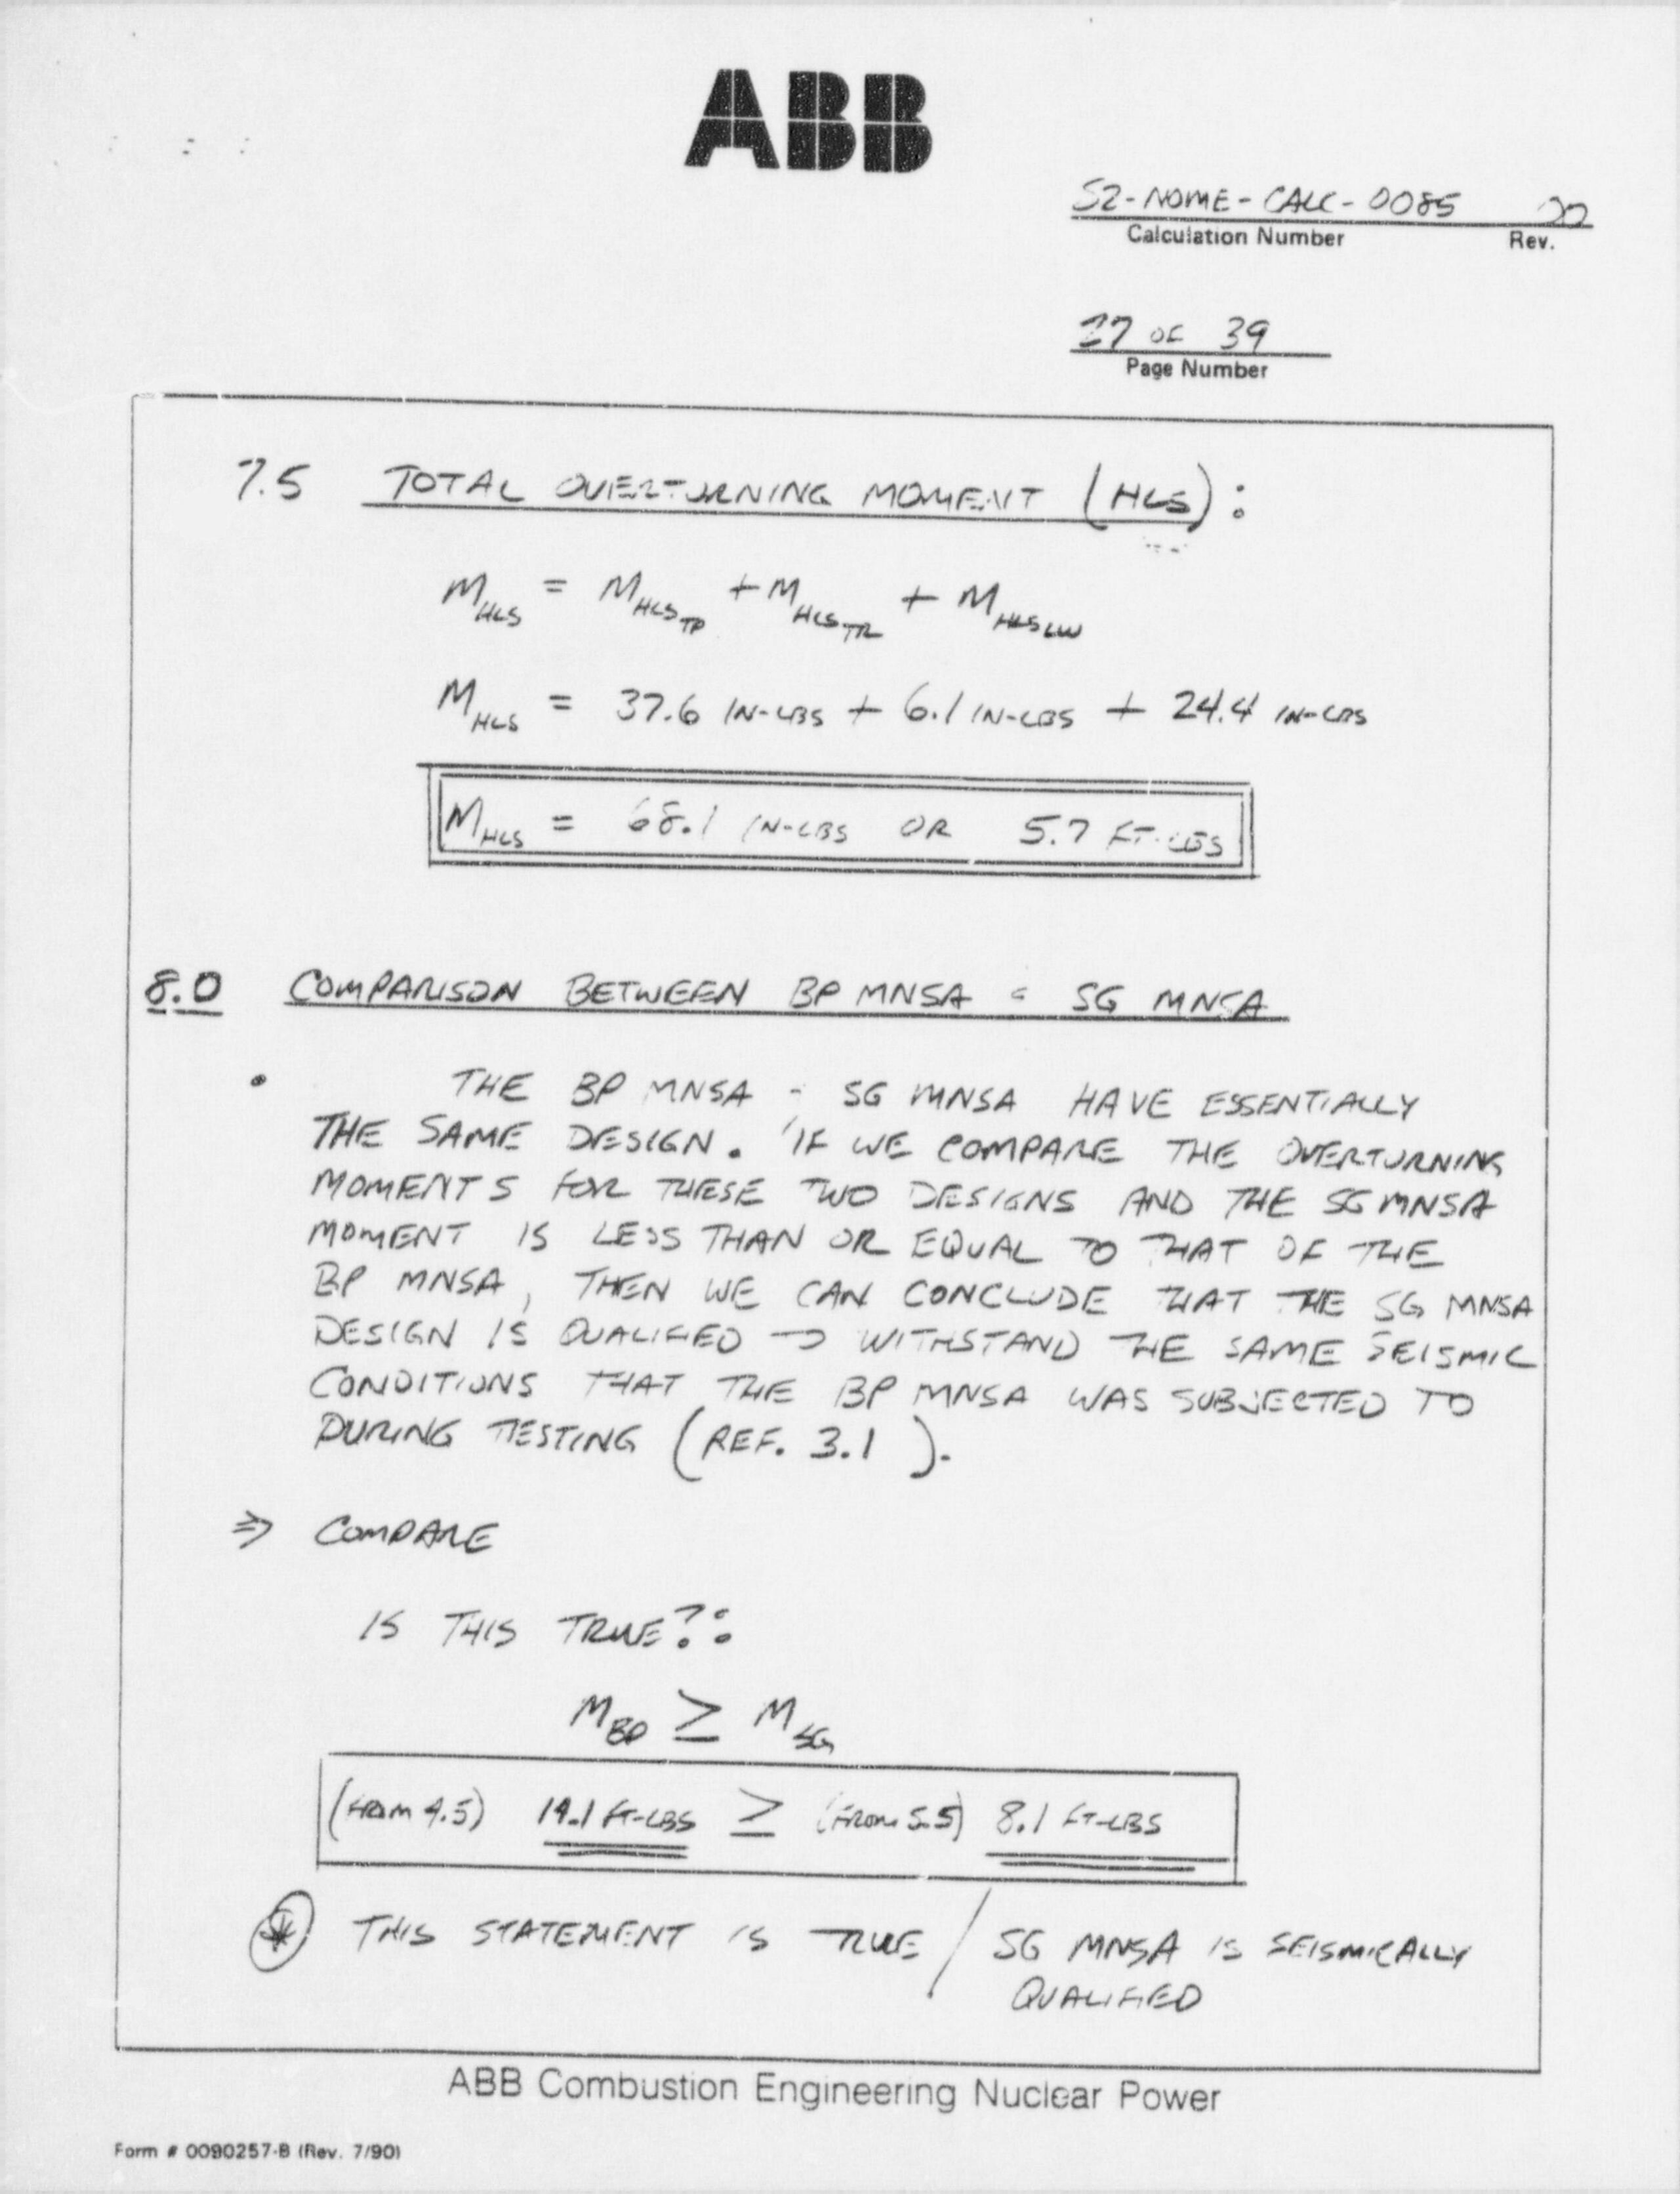 ABB
S2-NOME-CALC-0085
Calculation Number Rev.
27 OF 39
Page Number
7.5 TOTAL OVERTURNING MOMENT (HLS):
M HLS = M HLS TP + M HLS TR + M HLS LW
M HLS = 37.6 IN-LBS + 6.1 IN-LBS + 24.4 IN-LBS
M HLS = 68.1 IN-LBS OR 5.7 FT-LBS
8.0 COMPARISON BETWEEN BP MNSA SG MNSA
• THE BP MNSA SG MNSA HAVE ESSENTIALLY
THE SAME DESIGN. IF WE COMPARE THE OVERTURNING
MOMENTS FOR THESE TWO DESIGNS AND THE SG MNSA
MOMENT IS LESS THAN OR EQUAL TO THAT OF THE
BP MNSA, THEN WE CAN CONCLUDE THAT THE SG MNSA
DESIGN IS QUALIFIED TO WITHSTAND THE SAME SEISMIC
CONDITIONS THAT THE BP MNSA WAS SUBJECTED TO
DURING TESTING (REF. 3.1 ).
⇒ COMPARE
IS THIS TRUE?:
M BP ≥ M SG
(FROM 4.5) FT-LBS ≥ (FROM 5.5) 8.1 FT-LBS
* THIS STATEMENT IS TRUE / SG MNSA IS SEISMICALLY
QUALIFIED
ABB Combustion Engineering Nuclear Power
Form # 0090257-B (Rev. 7/90)